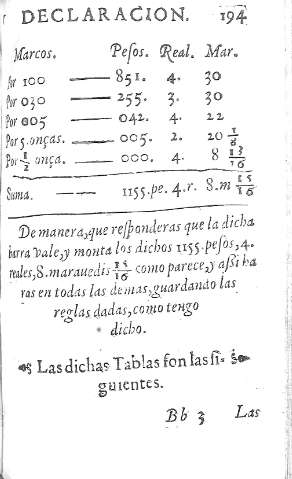 DECLARACION. 194
Marcos. Peſos. Real. Mar.
Por 100 —— 851. 4. 30
Por 030 —— 255. 3. 30
Por 005 —— 042. 4. 22
Por 5. onças. —— 005. 2. 20
Por ½ onça. —— 000. 4. 8 13/16
Suma. —— 1155. pe. 4. r. 8. m 15/16
De manera, que reſponderas que la dicha
barra vale, y monta los dichos 1155. peſos, 4.
reales, 8. marauedis 15/16 como parece, y aſsi ha
ras en todas las demas, guardando las
reglas dadas, como tengo
dicho.
Las dichas Tablas ſon las ſi-
guientes.
Bb 3 Las